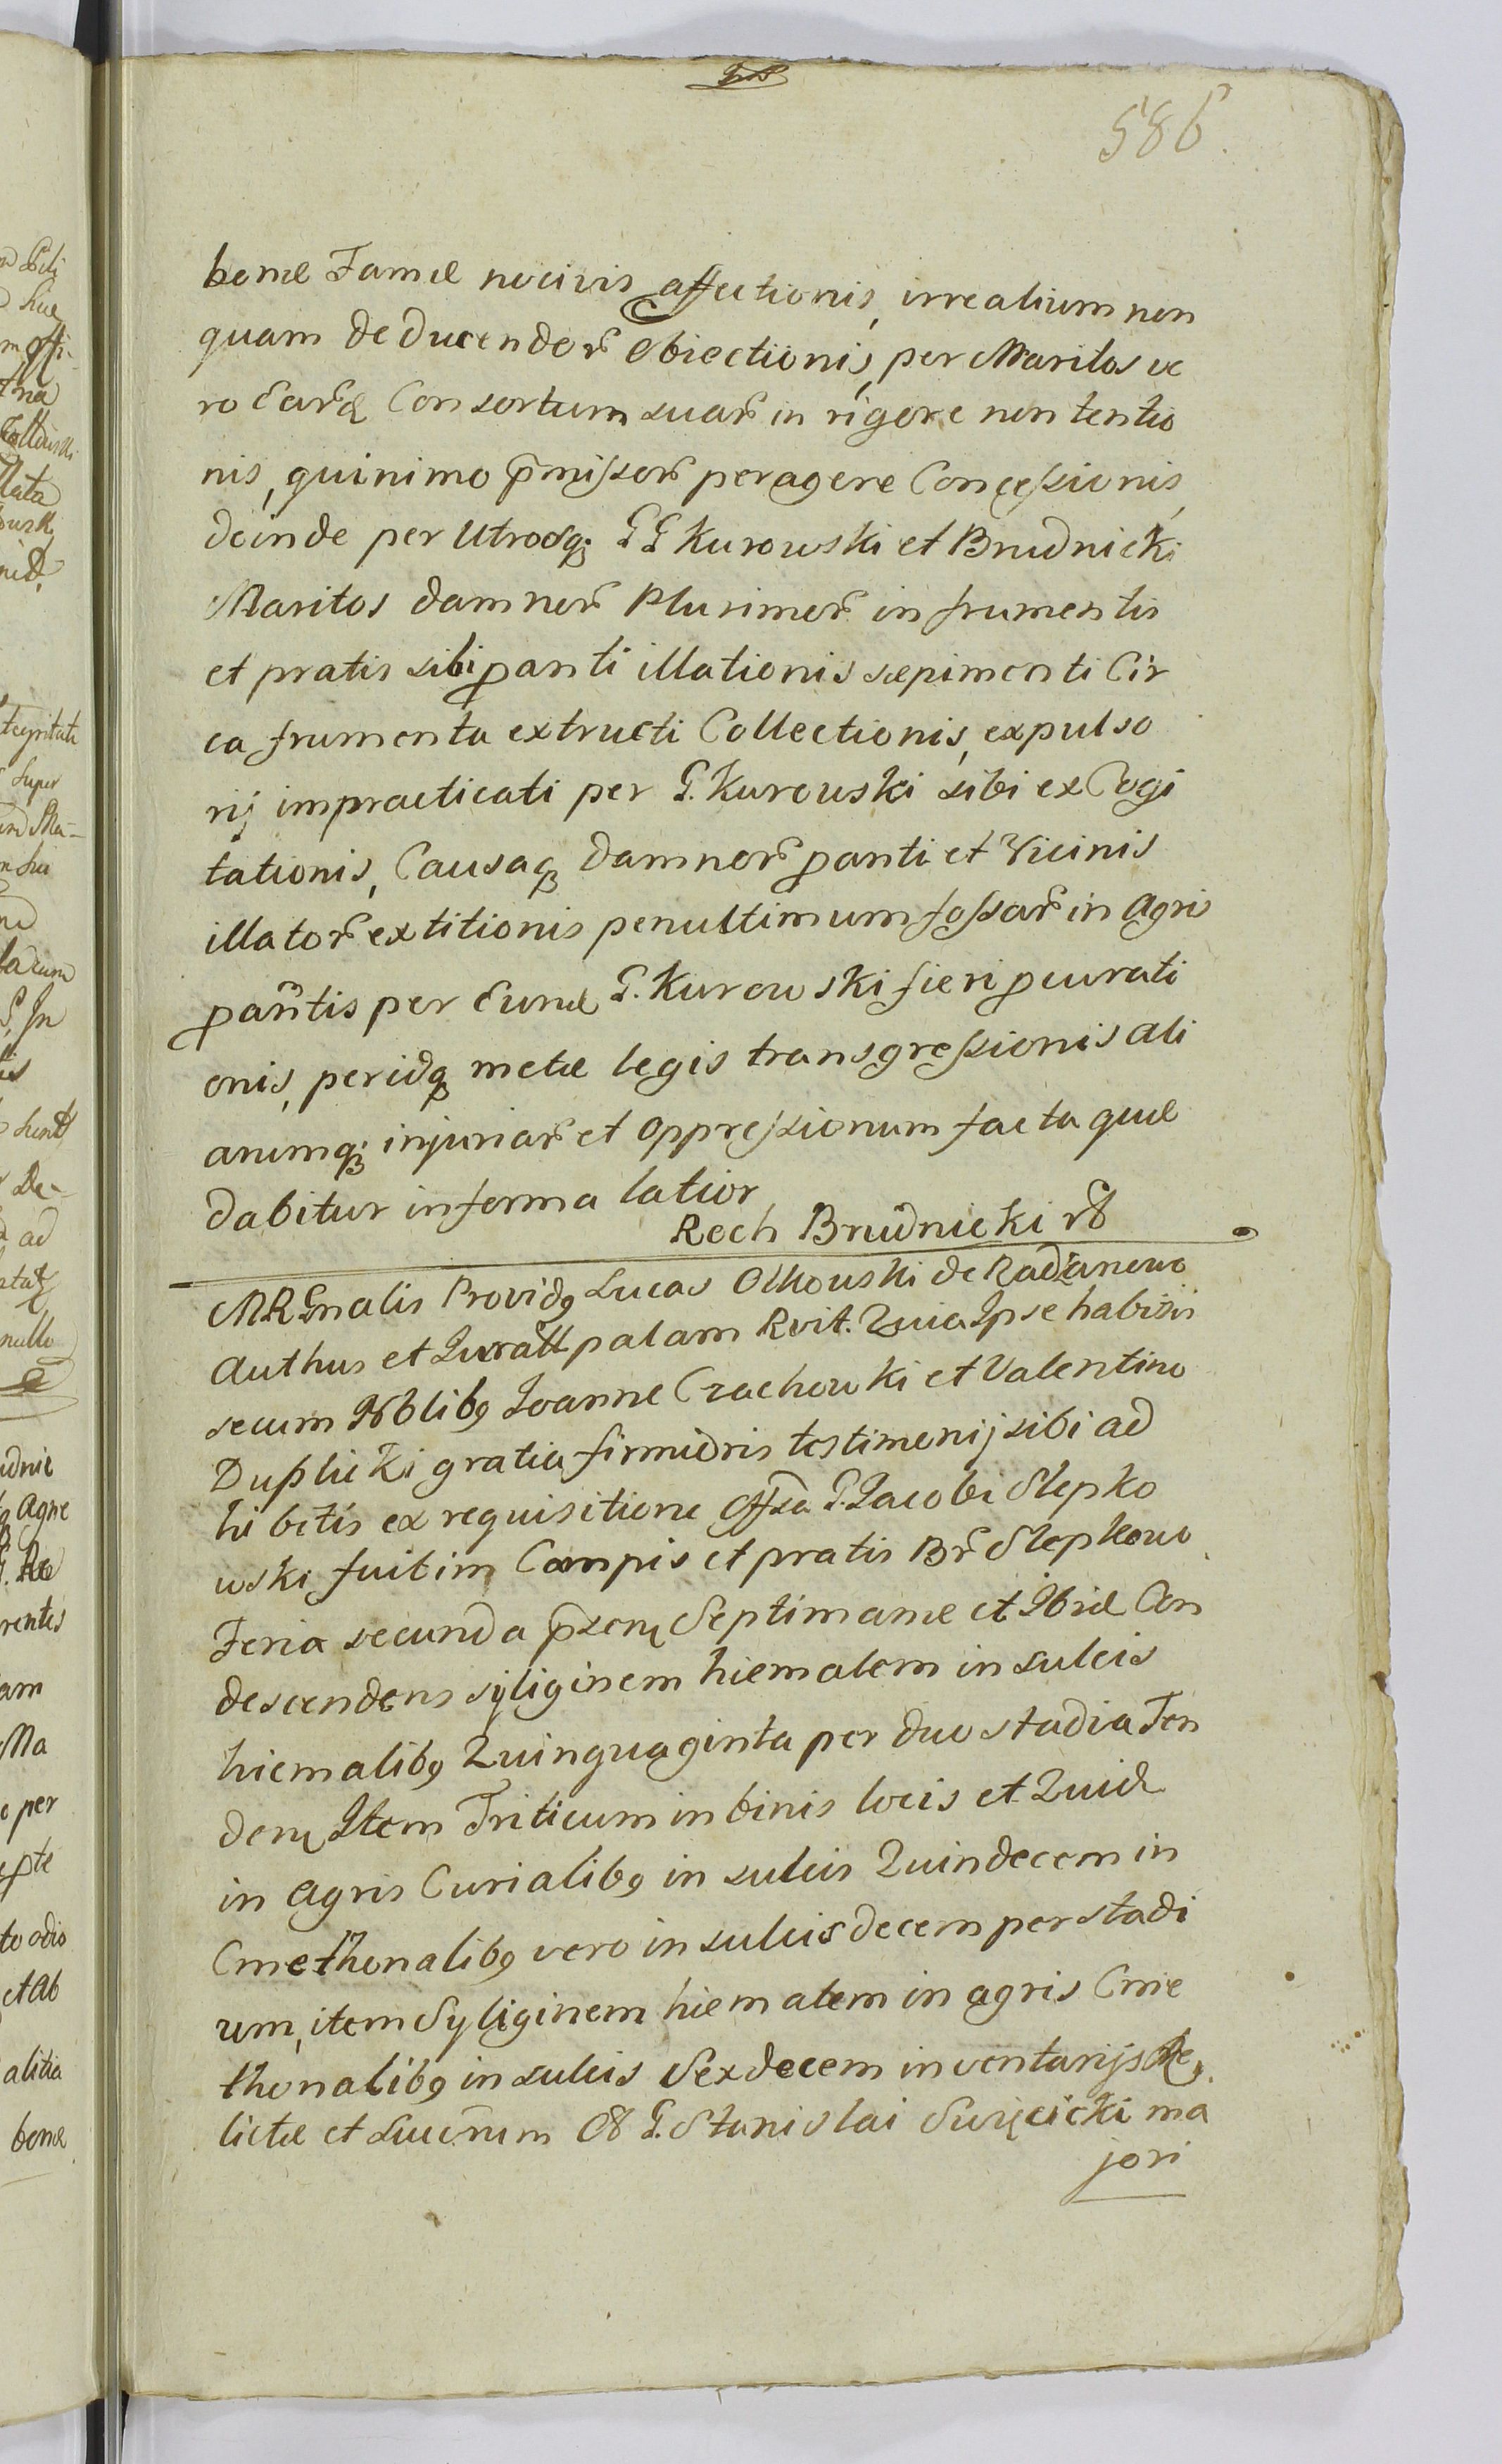 586.
bonæ Famæ nocivis affectionis, irrealium non
quam deducendor̃ Obiectionis, per Maritos ve
ro Earũd Consortum suar̃ in rigore non tentio
nis, quinimo p̃missor̃ peragere Concessionis,
deinde per Utrosq; GG Kurowski et Brudnicki
Maritos damnor̃ Plurimor̃ in frumentis
et pratis sibi panti illationis sæpimenti Cir
ca frumenta extructi Collectionis, expulso
rij impracticati per G. Kurowski sibi exCogi
tationis, Causaq; damnor̃ panti et Vicinis
illator̃ extitionis penultimum fossar̃ in Agris
pañtis per Eund G. Kurowski fieri pcurati
onis, peridq; metæ legis transgressionis ali
arumq; injuriar̃ et Oppressionum facta quæ
dabitur in forma latior
Roch Brudnicki
MRGnalis Providq Lucas Olkowski de Radzanowo
Authus et Juratt palam Rvit. Quia Ipse habitis
secum Nblibq Joanne Czachowki et Valentino
Duplicki gratia firmioris testimonij sibi ad
hibetis ex requisitione G. Jacobi Slepko
wski fuit in Campis et pratis Br̃ Slepkowo
Feria secunda p̃ Septimanæ et Ibid Con
descendens syliginem hiemalem in sulcis
hiemalibq Quinquaginta per duo stadia Ten
den, Item Triticum in binis locis et Quid
in Agris Curialibq in sulcis Quindecem in
Cmethonalibq vero in sulcis decem per stadi
um, item Syliginem hiematem in agris Cme
thonalibq in sulcis Sexdecem inventarijs Re
lictæ et G. Stanislai Swięcicki ma
jori